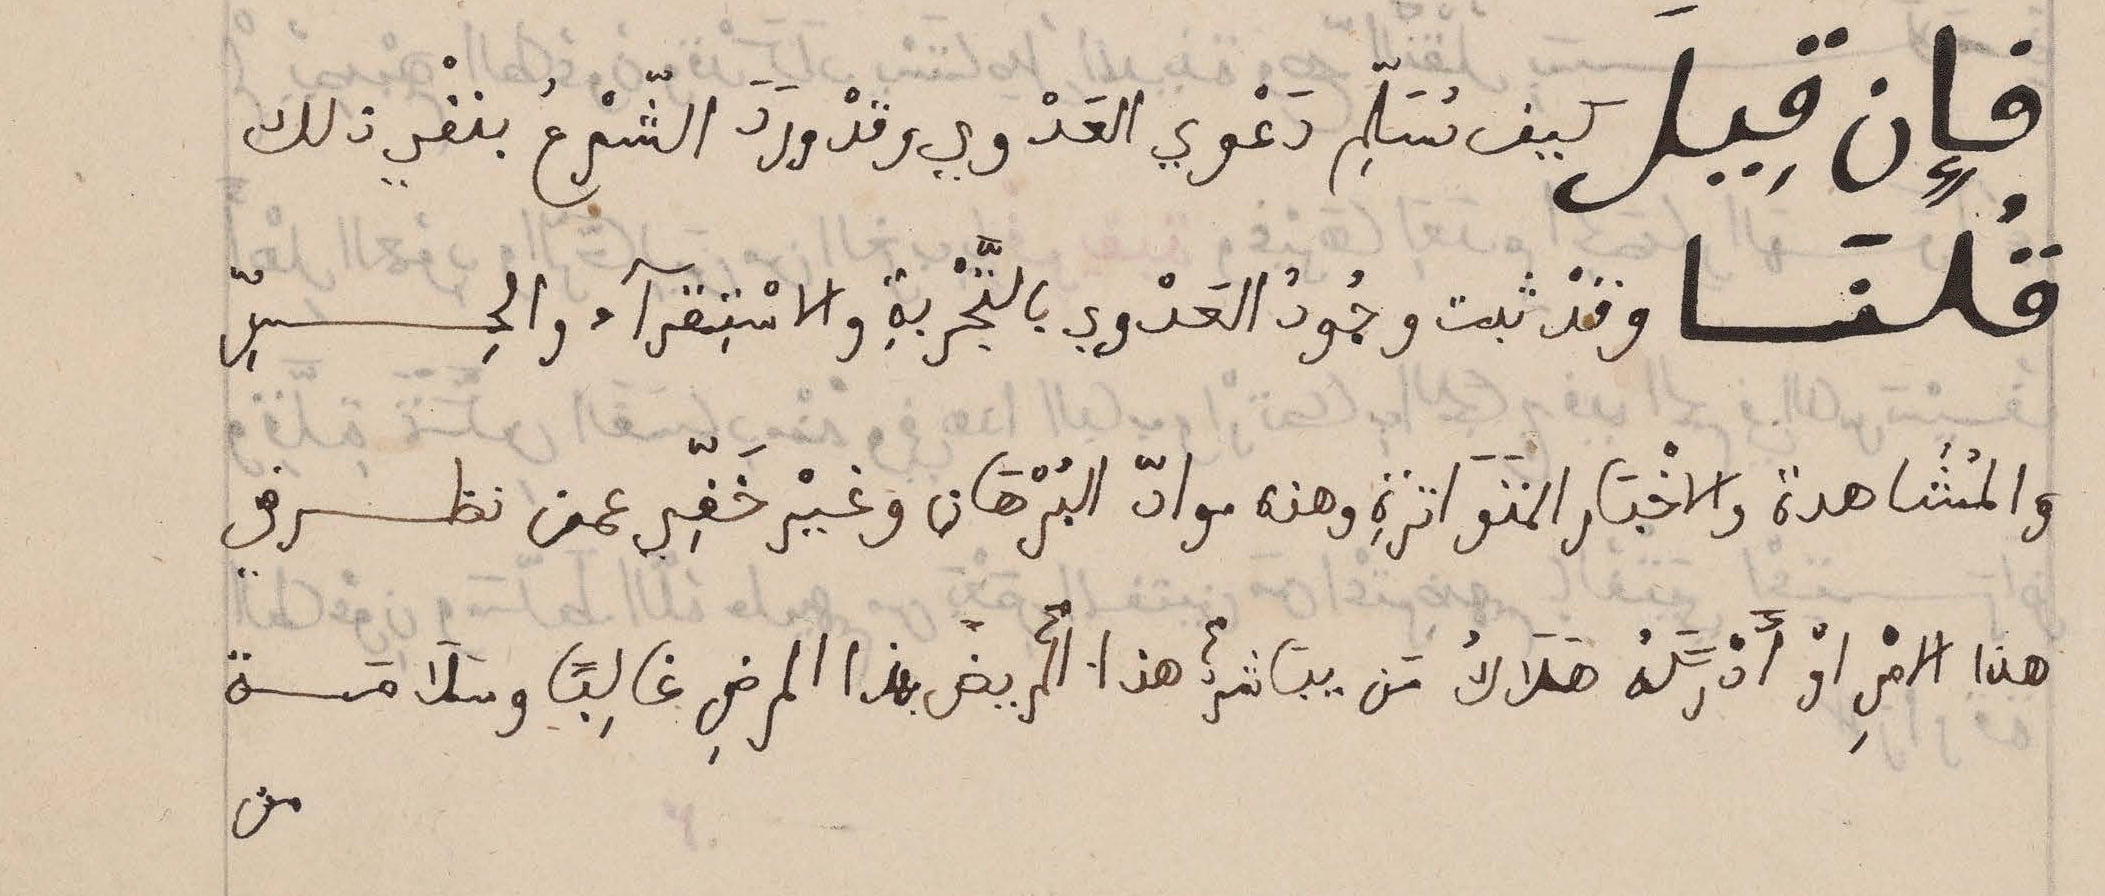 فإِن قِيلَ كيف نُسَلِّم دَعْوي العَدْوي وقدْ ورَدَ الشّرْعُ بنفْي ذلك
قُلنَا وقدْ ثبت وجُودُ العَدْوي بالتَّجْربةِ والاسْتِقرآء والحِسِّ
والمُشَاهدة والاخْبَار المتَوَاترَةِ وهذه موادّ البُرْهَان وغيْر خَفِّي عمن نظر في
هذا الامْرِ اوْ أَدْرَكَهُ هَلَاكُ مَن يبَاشرُ هذا المريضَ بهذا المرضِ غَالِبًا وسَلَامَة
من